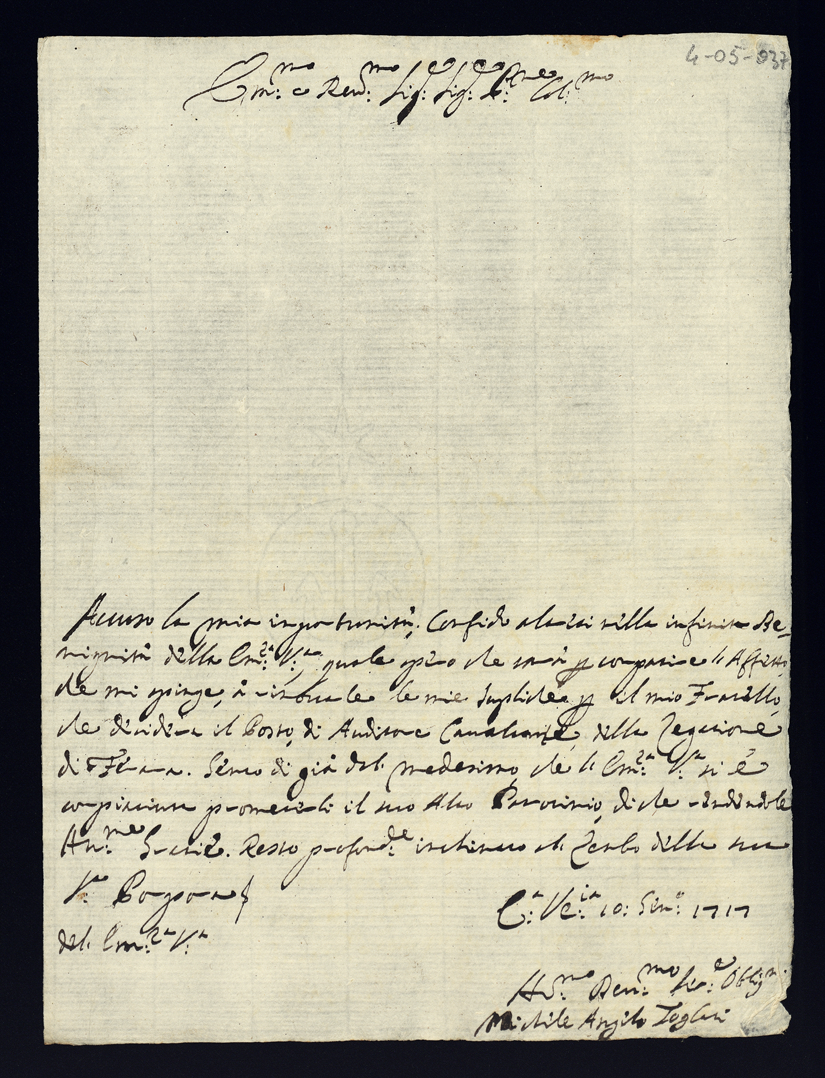 4-05-037
Em:mo e Rev:mo Sig:e Sig:e P:rone Col:mo
Accuso la mia inportunità; Confido alresi nella infinita Be-
nignità della Em:za V:ra, quale spero che sarà p compatire l'Affetto,
che mi spinge, à rinovarle le mie supliche p il mio Fratello,
che desidera il Posto, di Auditore Cavalcante, della Legatione
di Ferara. Sento di già dal medesimo, che l'Em:za V:ra si è
compiaciuta prometerli il suo Alto Patrocinio, di che rendendole
Hu:me Gratie. Resto profond:te inchinato al Lembo della sua
V:ra Porpora
dell Em:za V:ra
C:a 10: Gen:o 1717
Hu:mo Dev:mo Se:e Oblig:mo
Michele Angelo